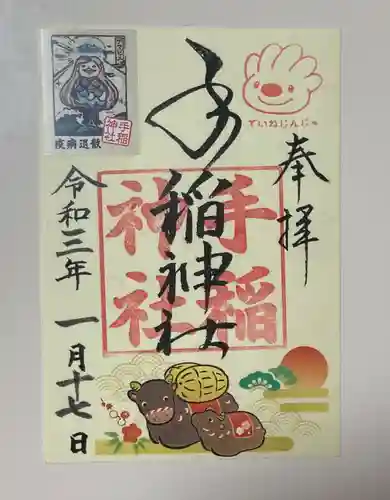 奉拝
手稲神社
手稲
神社
ていねじんじゃ
手稲
神社
疫病退散
令和三年
一月十七日